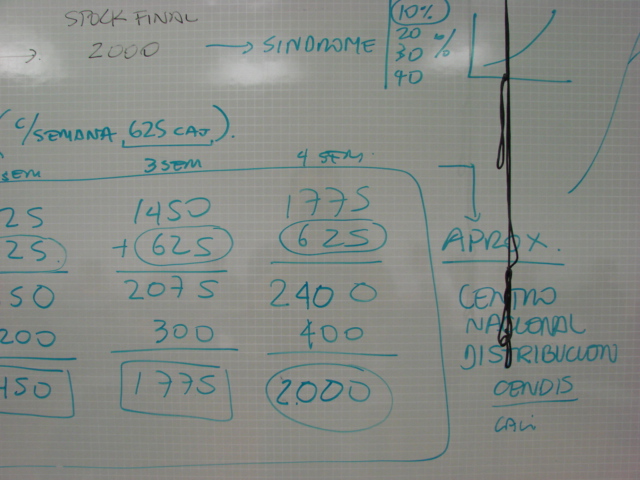 STOCK FINAL
2000 → SINDROME
10%
20 %
30 %
40
(C/SEMANA 625 CAJ).
SEM 3 SEM 4 SEM.
25 1450 1775
25 + 625 625
50 2075 2400
200 300 400
450 1775 2000
APROX.
CENTRO
NACIONAL
DISTRIBUCION
CENDIS
CALI